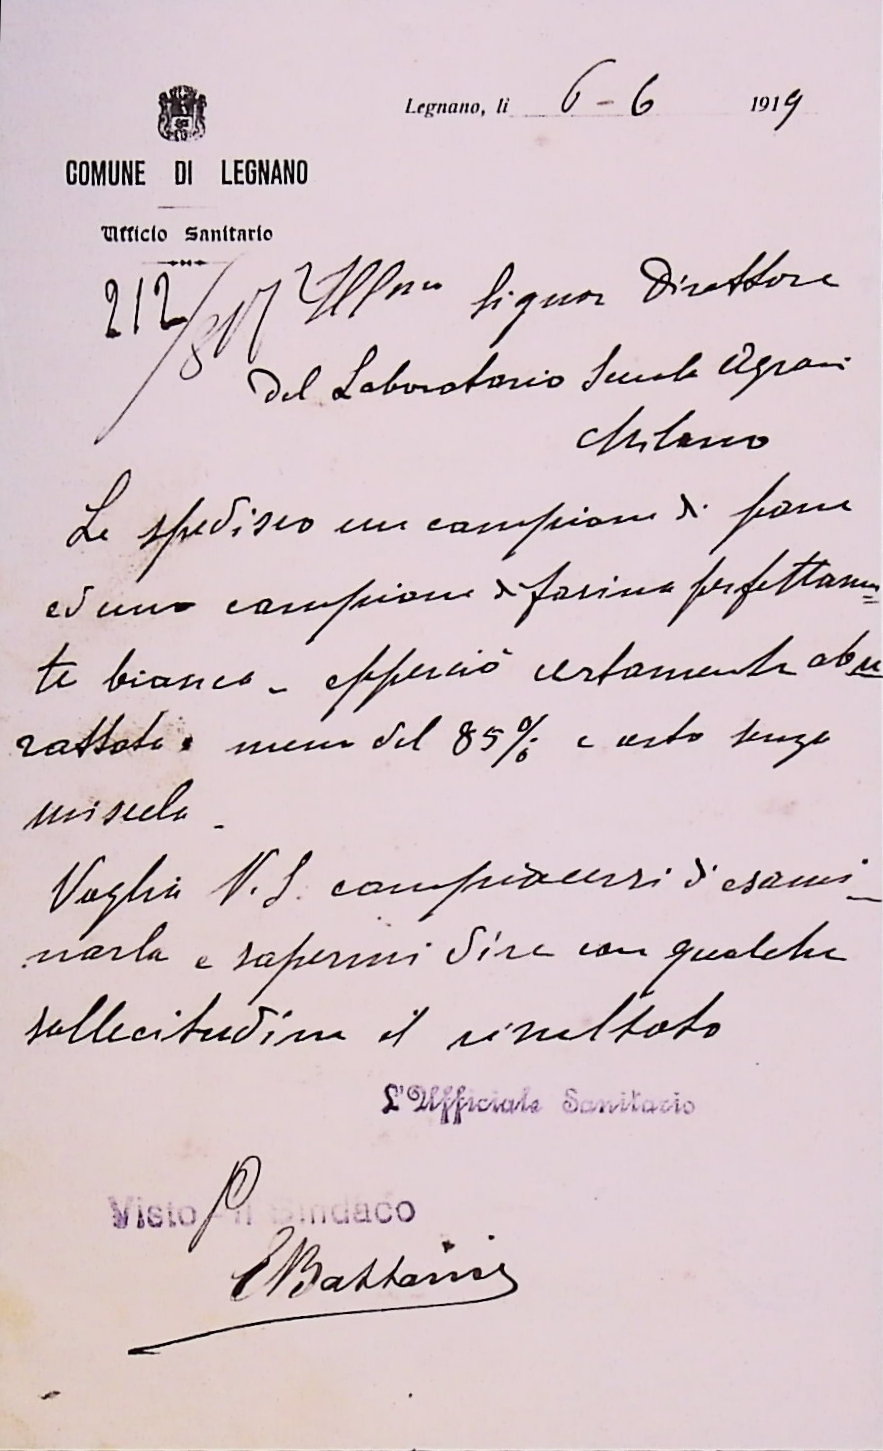 Legnano, li 6-6 1919
COMUNE DI LEGNANO
Ufficio Sanitario
212
Ill.mo Signor Direttore
del Laboratorio Scuola Agrari
Milano
Le spedisco un campione di pane
ed uno campione di farina perfettamen=
te bianca - epperciò certamente abu
rattata meno del 85% e certo senza
miscela.
Voglia V. S. compiacersi di esami-
narla e sapermi dire con qualche
sollecitudine il risultato
L'Ufficiale Sanitario
Visto - Il Sindaco